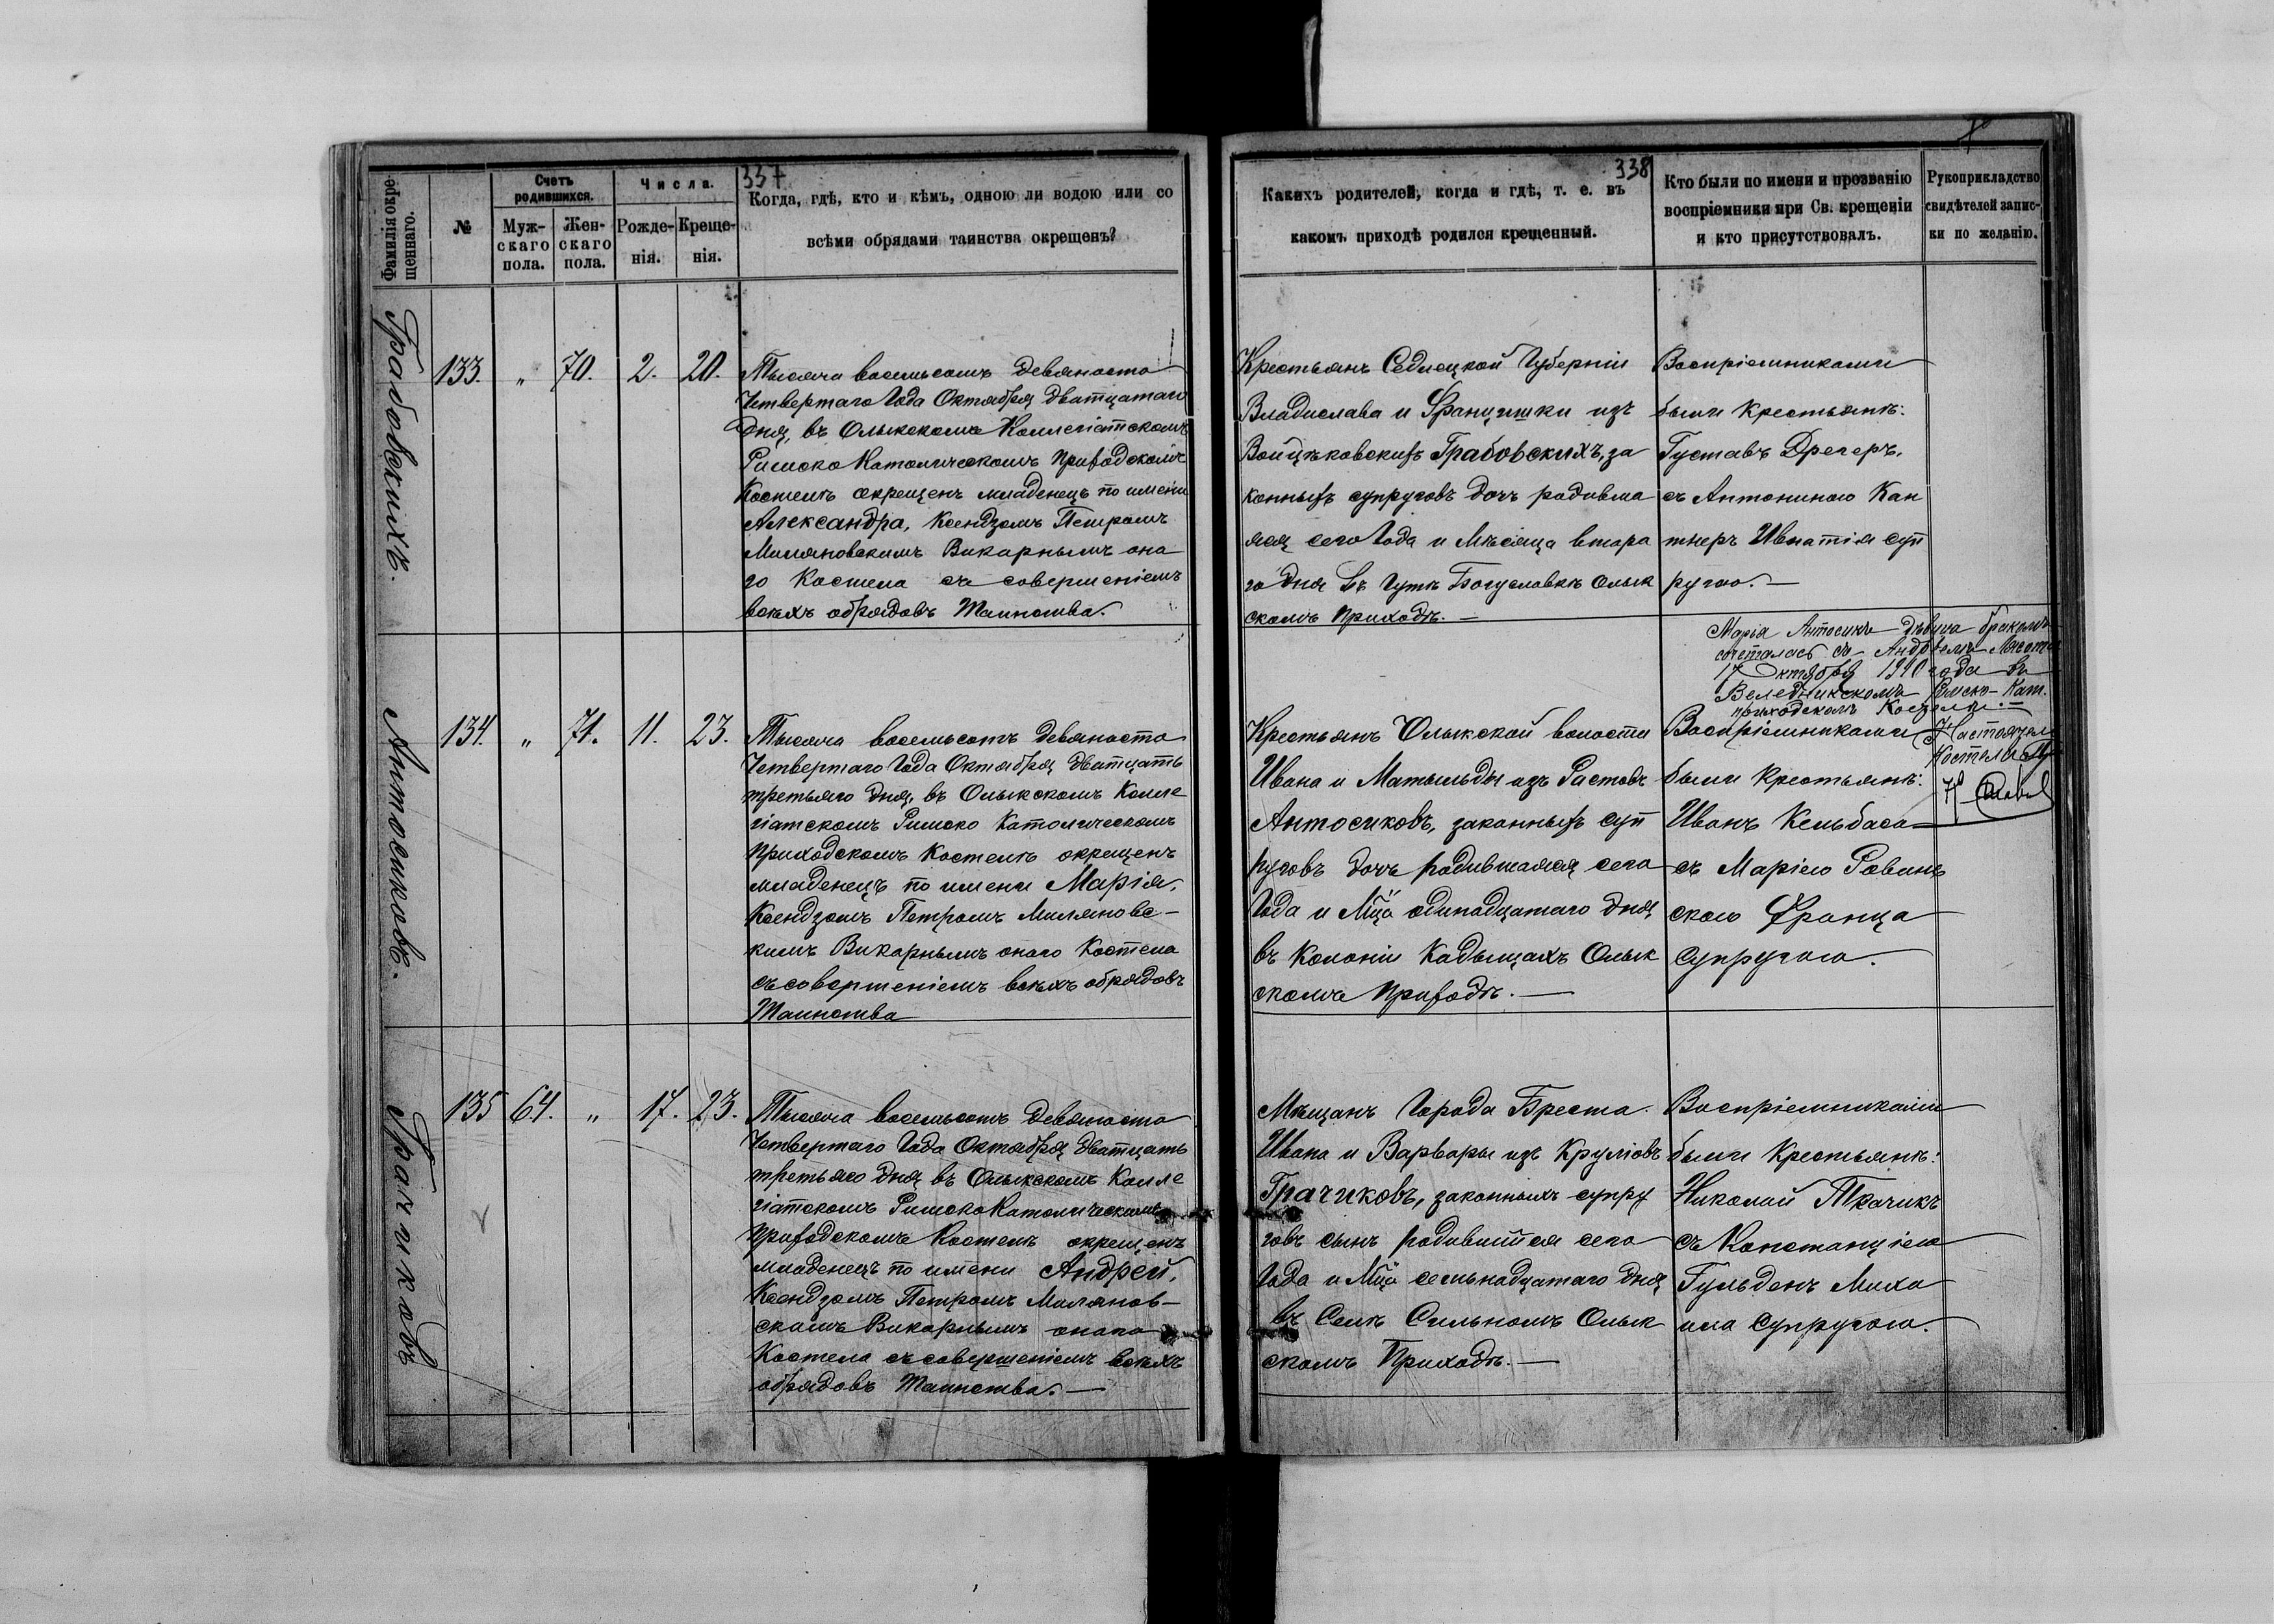 337
Фамилія окре-
щеннаго.
№
Счетъ
родившихся.
Муж-
скаго
пола.
Жен-
скаго
пола.
Числа.
Рожде-
нія.
Креще-
нія.
Когда, гдѣ, кто и кѣмъ, одною ли водою или со
всѣми обрядами таинства окрещенъ?
Грабовскихъ.
133. „ 70. 2. 20.
Тысяча восемьсотъ девяносто
Четвертаго Года Октября дватцатаго
дня, въ Олыкскомъ Коллегіатскомъ
Римско Католическомъ Приходскомъ
Костелѣ окрещенъ младенецъ по имени
Александра, Ксендзомъ Петромъ
Миляновскимъ Викарнымъ она
го Костела съ совершеніемъ
всѣхъ обрядовъ Таинства.
Антосиковъ.
134. „ 71. 11. 23.
Тысяча восемьсотъ девяносто
Четвертаго Года Октября дватцать
третьяго дня, въ Олыкскомъ Колле
гіатскомъ Римско Католическомъ
Приходскомъ Костелѣ окрещенъ
младенецъ по имени Марія,
Ксендзомъ Петромъ Миляновс-
кимъ Викарнымъ онаго Костела
съ совершеніемъ всѣхъ обрядовъ
Таинства
Грачиковъ
135 64. „ 17. 23.
Тысяча восемьсотъ девяносто
Четвертаго Года Октября дватцать
третьяго дня въ Олыкскомъ Колле
гіатскомъ Римско Католическомъ
Приходскомъ Костелѣ окрещенъ
младенецъ по имени Андрей,
Ксендзомъ Петромъ Милянов-
скимъ Викарнымъ онаго
Костела съ совершеніемъ всѣхъ
обрядовъ Таинства.—
338
Какихъ родителей, когда и гдѣ, т. е. въ
какомъ приходѣ родился крещенный.
Кто были по имени и прозванію
воспріемники при Св. крещеніи
и кто присутствовалъ.
Рукоприкладство
свидѣтелей запис-
ки по желанію.
Крестьянъ Седлецкой Губерніи
Владислава и Францишки изъ
Войцѣховскихъ Грабовскихъ, за
конныхъ супруговъ дочь родивша
яся сего Года и Мѣсяца втора
го дня въ Гутѣ Богуславкѣ Олык
скомъ Приходѣ.—
Воспріемниками
были Крестьянѣ:
Густавъ Дрегеръ,
съ Антониною Кан
тнеръ Игнатія суп
ругою.—
Марія Антосикъ дѣвица бракомъ
сочеталась съ Андреемъ
17 Октября 1910 года въ
Веледникскомъ Римско-Кат.
приходскомъ Костелѣ.—
Настоятель
Костела
Крестьянъ Олыкской волости
Ивана и Матыльды изъ Ристовъ
Антосиковъ, законныхъ суп
руговъ дочь родившаяся сего
Года и Мца одинадцатаго дня
въ Колоніи Кадыщахъ Олык
скомъ Приходѣ.—
Воспріемниками
были Крестьянѣ:
Иванъ Кельбаса
съ Маріею Ровинь
скою Франца
супругою.
Мѣщанъ Города Бреста
Ивана и Варвары изъ Круліовъ
Грачиковъ, законныхъ супру
говъ сынъ родившійся сего
Года и Мца семьнадцатаго дня
въ Селѣ Сильномъ Олык
скомъ Приходѣ.—
Воспріемниками
были Крестьянѣ:
Николай Ткачикъ
съ Констанціею
Гульденъ Миха
ила супругою.